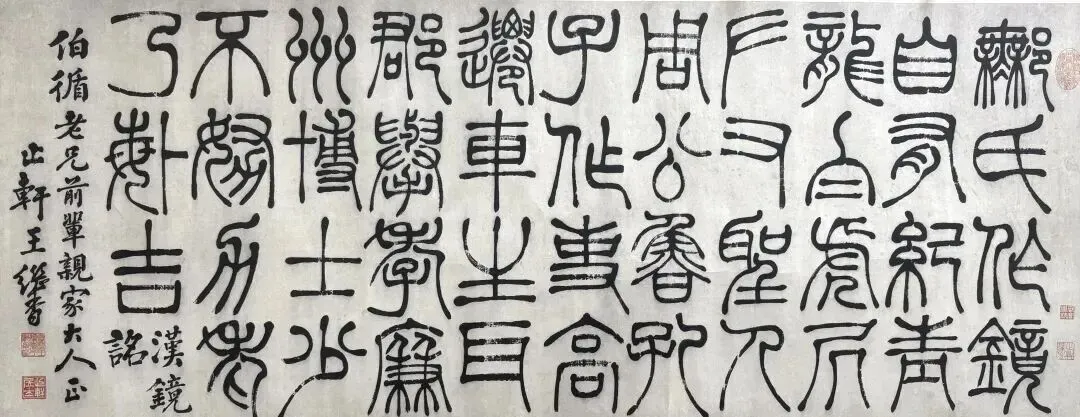 鄦氏作鏡
自有紀青
龍白虎居
左右聖人
周公魯孔
子作吏高
遷車生耳
郡舉孝廉
州博士少
不努力老
乃悔吉
漢鏡
銘
伯循老兄前輩親家大人正
止軒王繼香